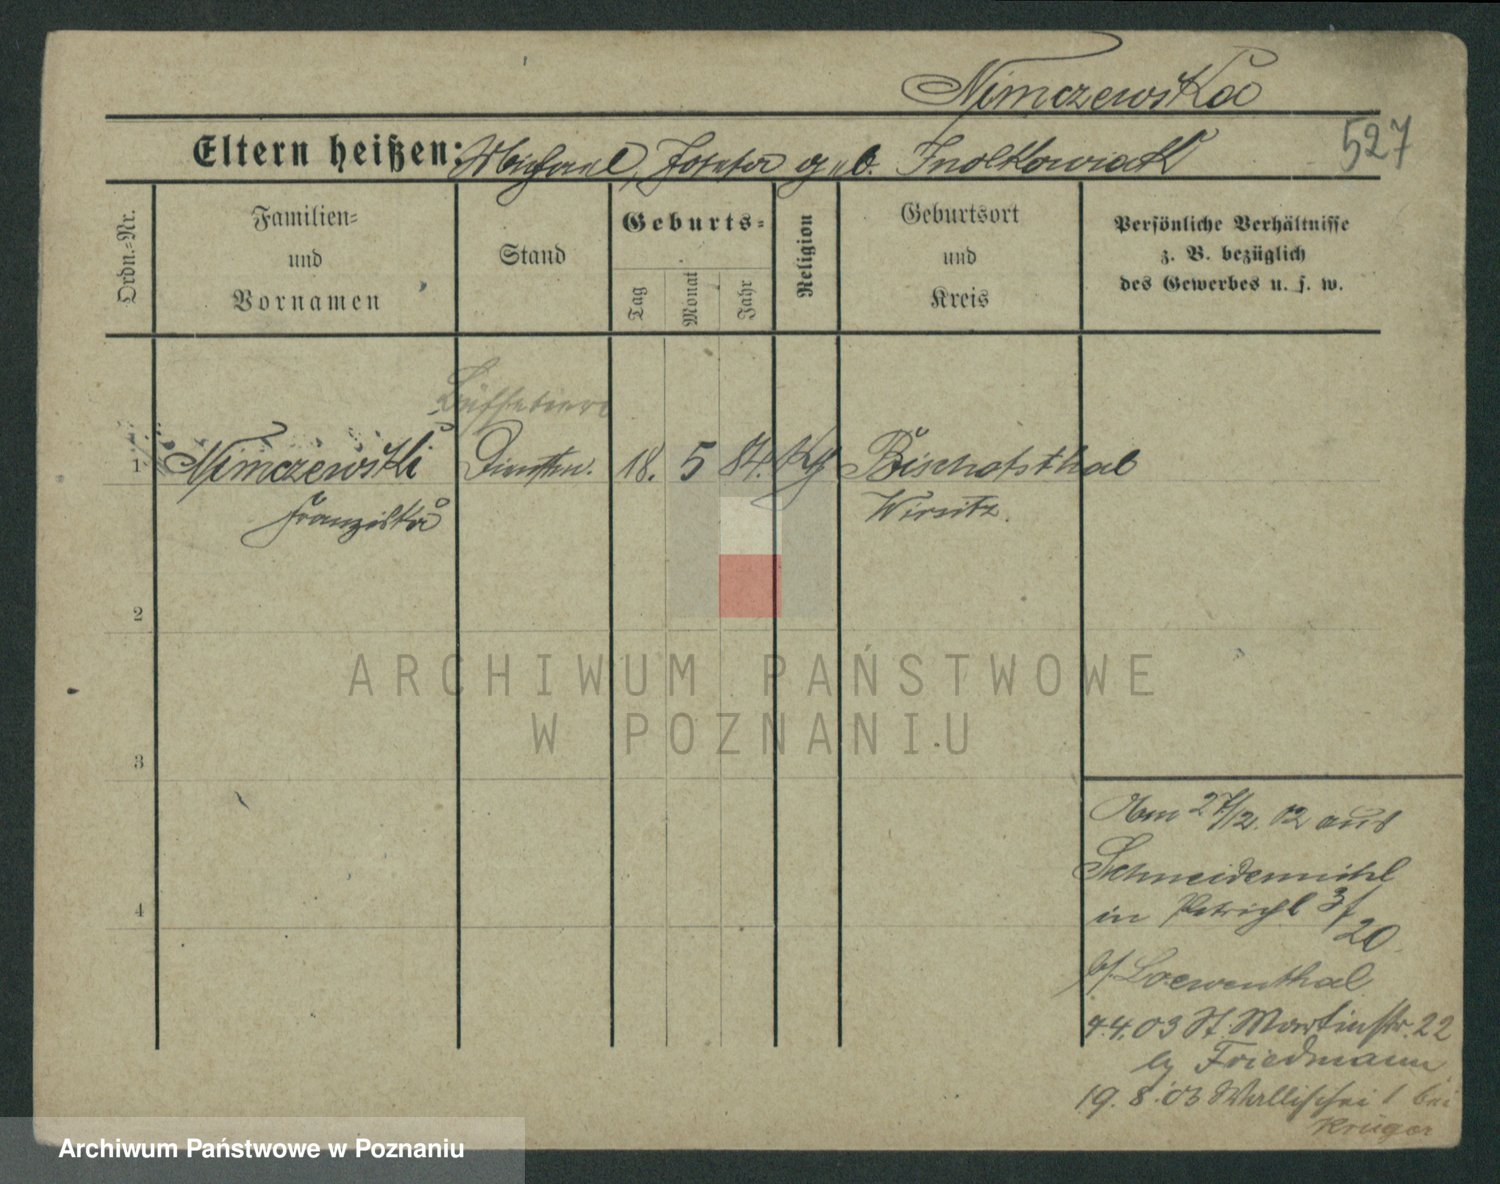 Nimczewska
527
Eltern heißen: Michael, Josefa geb. Inolkowiack
Ordn.=Nr.
Familien=
und
Vornamen
Stand
Geburts=
Tag
Monat
Jahr
Religion
Geburtsort
und
Kreis
Persönliche Verhältnisse
z. B. bezüglich
des Gewerbes u. s. w.
Büffetiere
1 Nimczewski Dienstm. 18. 5 84. Kg Bischofsthal
Franziska Wirsitz.
2
3
4
Am 27/2. 02 aus
Schneidemühl
in 3/
20
b/ Loewenthal
4.4.03 St. Martinstr. 22
by Friedmann
19.8.03 Wallischei 1 bei
Krüger
ARCHIWUM PAŃSTWOWE
W POZNANIU
Archiwum Państwowe w Poznaniu